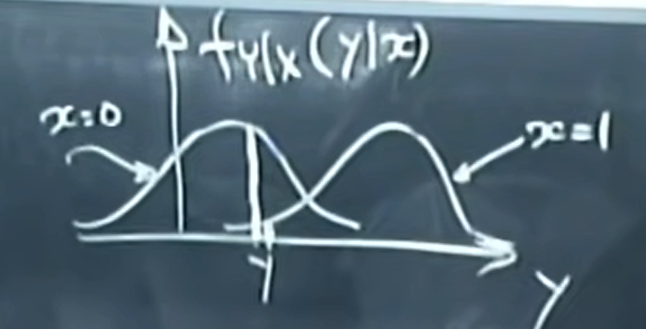 fY|X(y|x)
x=0
x=1
y
y